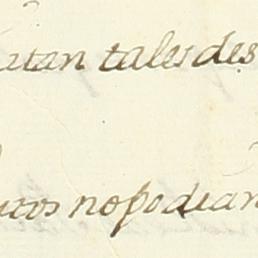 atan tales des
utos nopodian